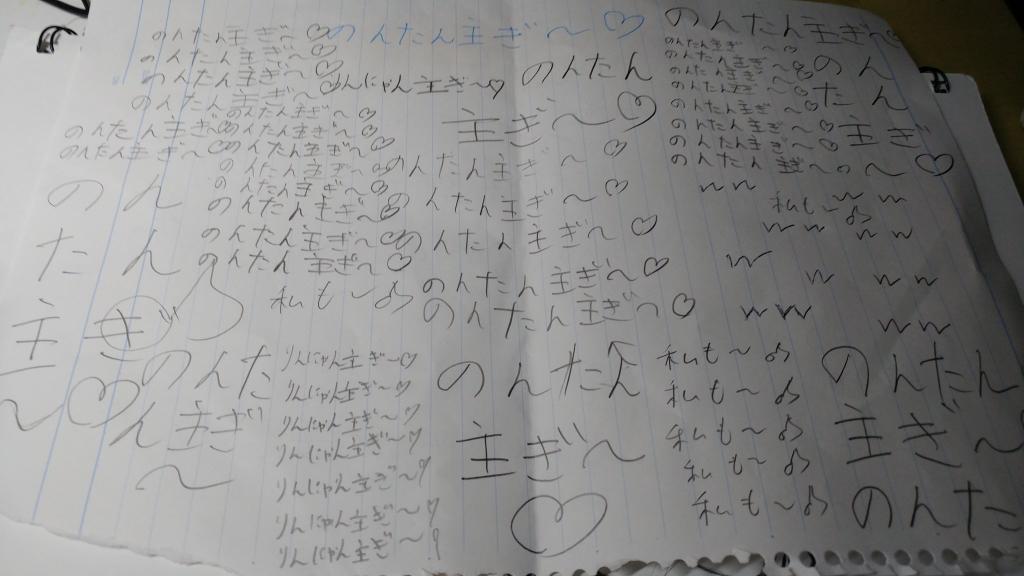 のんたん主ぎ～♡
のんたん主ぎ～♡
のんたん主ぎ～♡
のんたん主ぎ～♡
のんたん主ぎ～♡
のんたん主ぎ～♡
のんたん主ぎ～♡
のんたん主ぎ～♡
のんたん主ぎ～♡
のんたん主ぎ～♡
のんたん主ぎ～♡
のんたん主ぎ～♡
のんたん主ぎ～♡
のんたん主ぎ～♡
私も～♪
のん
たん
主ぎ
～♡
のんた
ん主ぎ
～
りんにゃん主ぎ～♡
りんにゃん主ぎ～♡
りんにゃん主ぎ～♡
りんにゃん主ぎ～♡
りんにゃん主ぎ～♡
りんにゃん主ぎ～♡
りんにゃん主ぎ～♡
のんたん主ぎ～♡
りんにゃん主ぎ～♡
のんたん
主ぎ～♡
のんたん主ぎ～♡
のんたん主ぎ～♡
のんたん主ぎ～♡
のんたん主ぎ～♡
のんたん主ぎ～♡
のんたん
主ぎ～
♡
のんたん主ぎ～♡
のんたん主ぎ～♡
のんたん主ぎ～♡
のんたん主ぎ～♡
のんたん主ぎ～♡
のんたん主ぎ～♡
のんたん主ぎ～♡
のんたん主ぎ～
のん
たん
主ぎ
～♡
w w
私も～♪
w w
w w
w w
w
w
w w
w w w
w w
私も～♪
私も～♪
私も～♪
私も～♪
私も～♪
のんたん
主ぎ～
のんた